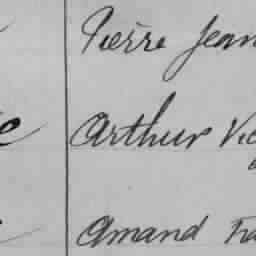 Pierre Jean
Arthur Vic
Amand